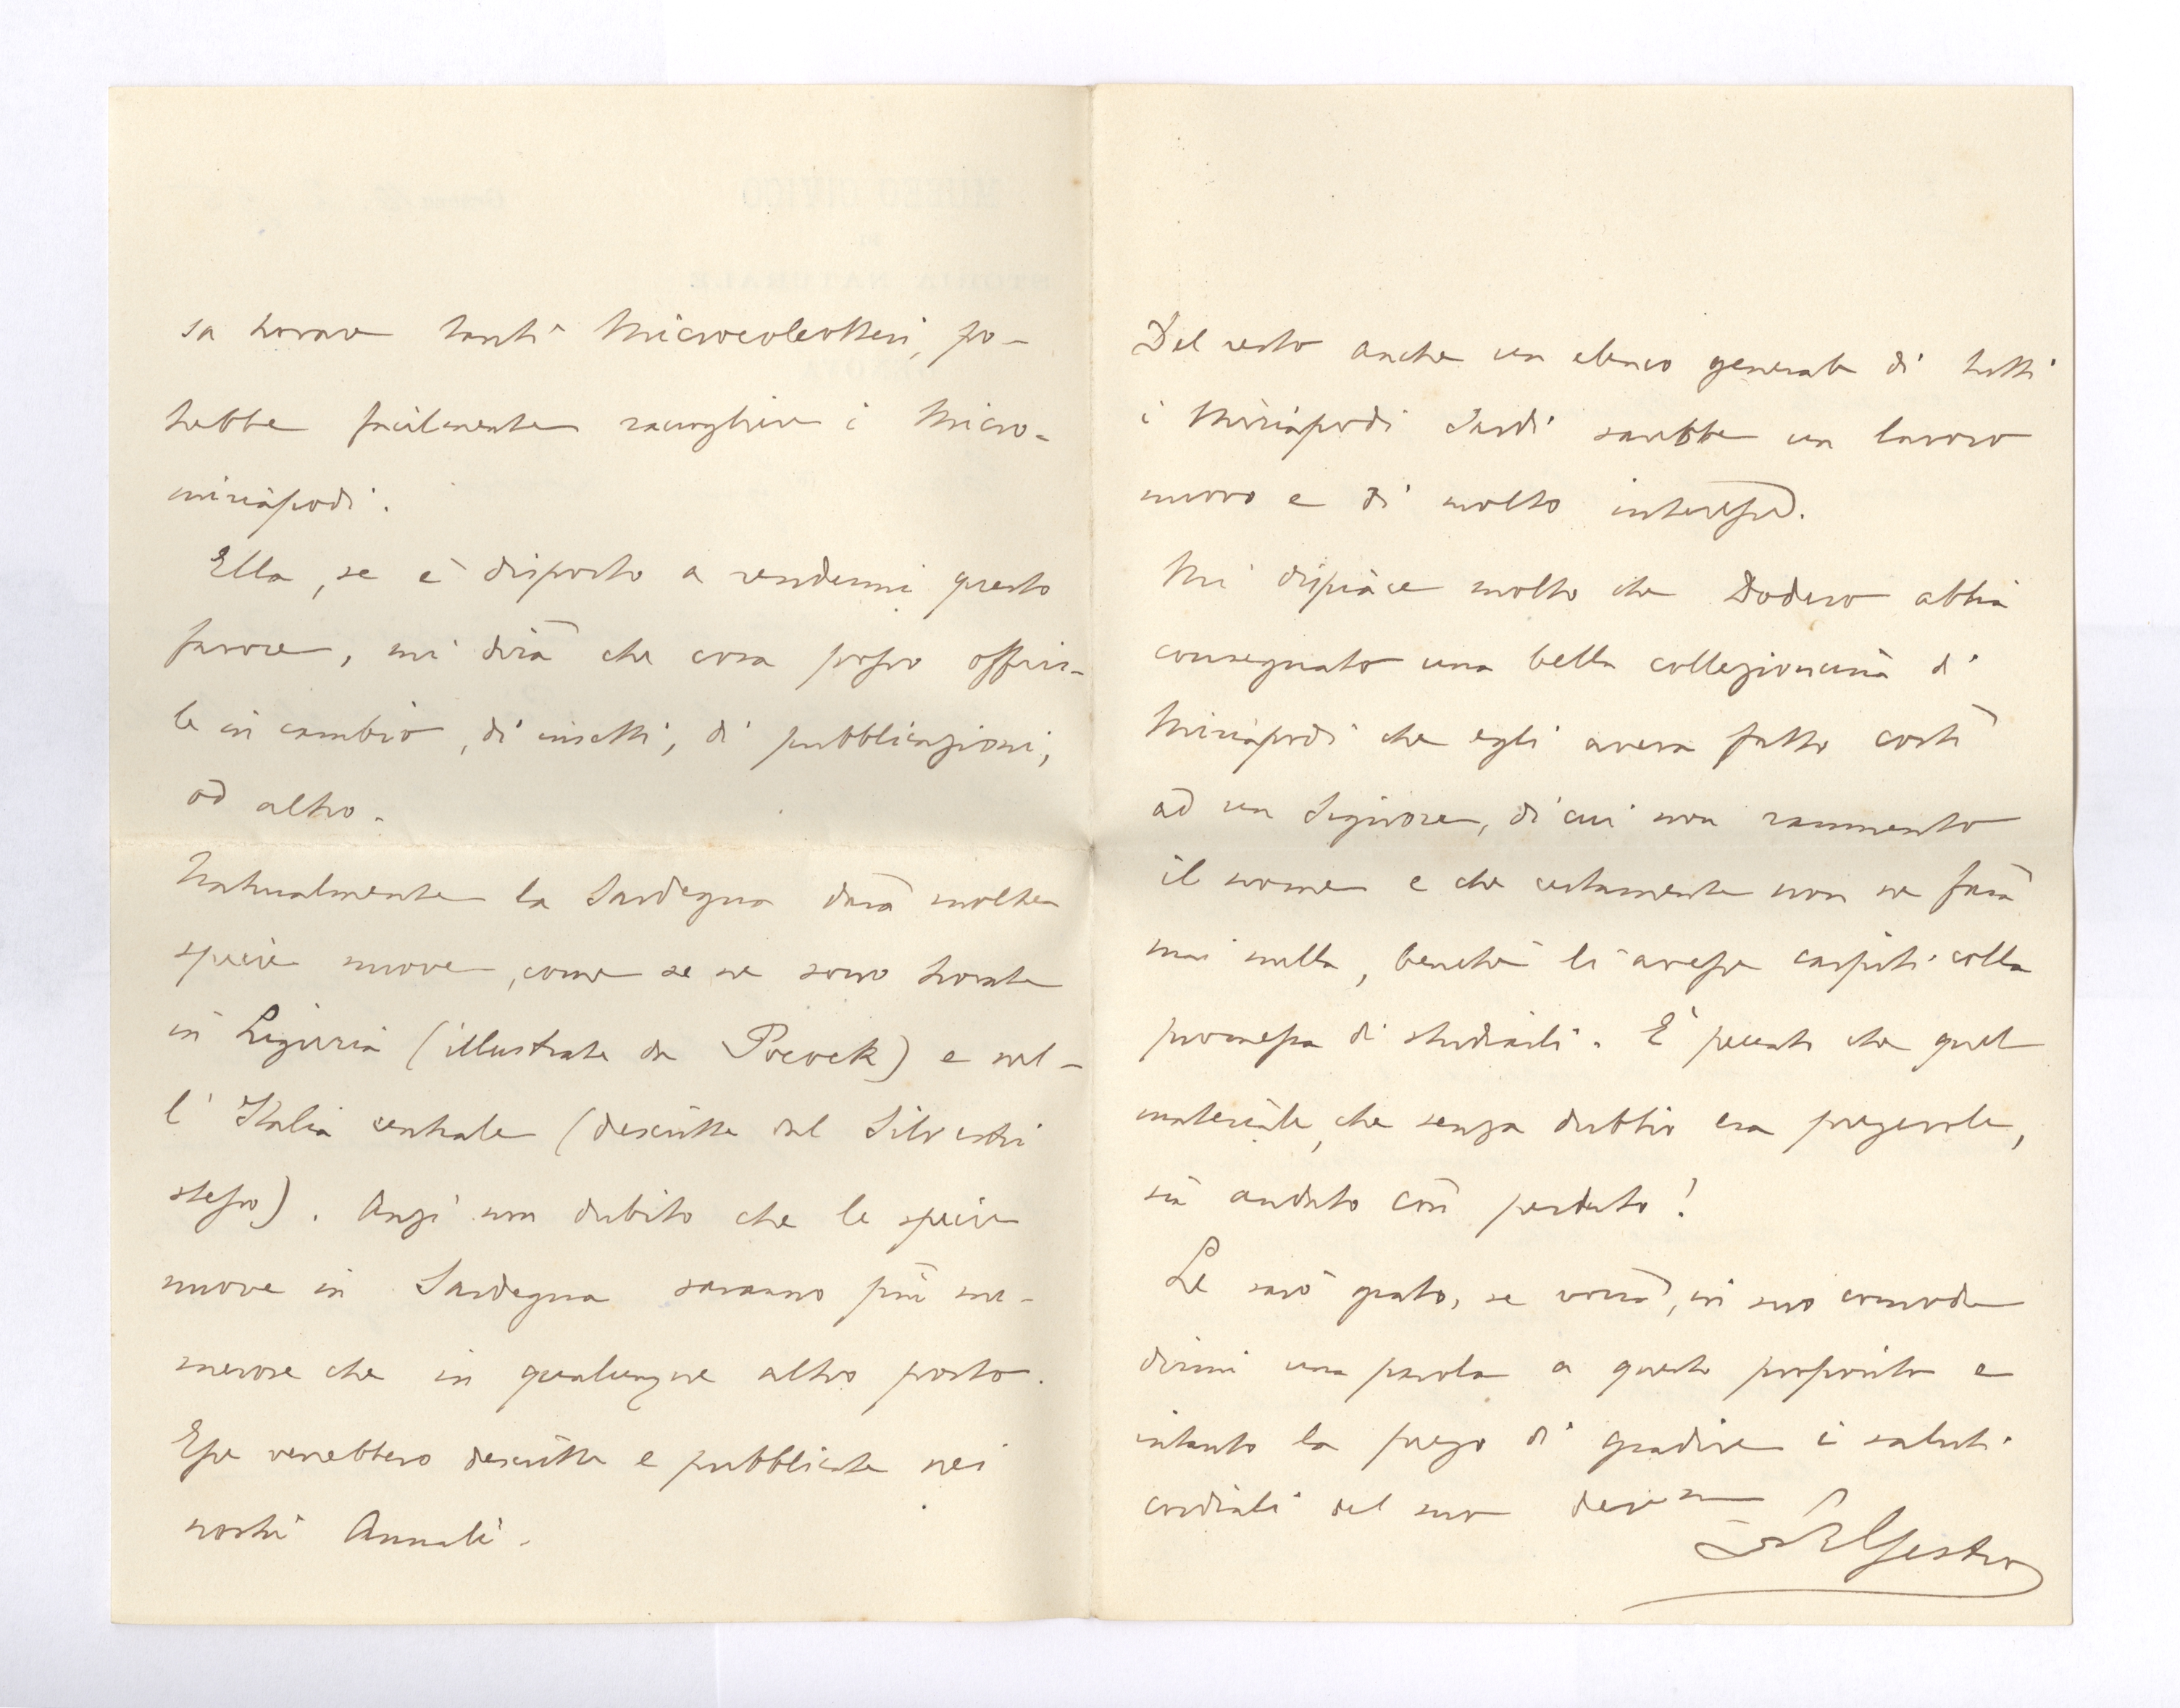 sa trovare tanti Microcoleotteri, po-
trebbe facilmente raccogliere i Micro-
miriapodi.
Ella, se è disposto a rendermi questo
favore, mi dirà che cosa posso offrir-
le in cambio, di insetti, di pubblicazioni,
od altro.
Naturalmente la Sardegna darà molte
specie nuove, come se ne sono trovate
in Liguria (illustrate da Pocock) e nel-
l'Italia centrale (descritte dal Silvestri
stesso). Anzi non dubito che le specie
nuove in Sardegna saranno più nu-
merose che in qualunque altro posto.
Esse verrebbero descritte e pubblicate nei
nostri Annali.
Del resto anche un elenco generale di tutti
i Miriapodi Sardi sarebbe un lavoro
nuovo e di molto interesse.
Mi dispiace molto che Dodero abbia
consegnato una bella collezioncina di
Miriapodi che egli aveva fatto costì
ad un Signore, di cui non rammento
il nome e che certamente non ne farà
mai nulla, benchè li avesse carpiti colla
promessa di studiarli. È peccato che quel
materiale, che senza dubbio era pregevole,
sia andato così perduto!
Le sarò grato, se vorrà, in suo comodo
dirmi una parola a questo proposito e
intanto la prego di gradire i saluti
cordiali del suo dev.mo
R Gestro
MUSEO CIVICO
DI
STORIA NATURALE
GENOVA